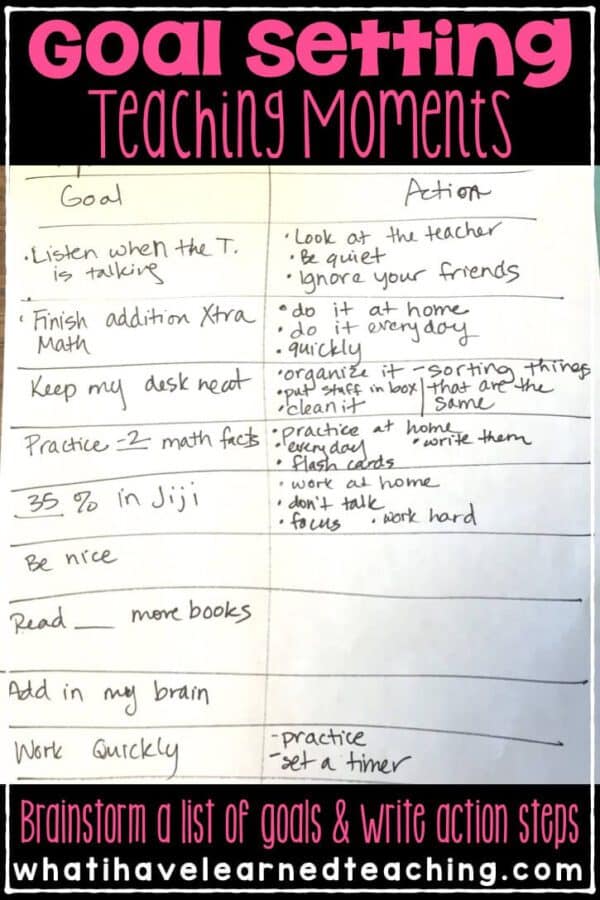 Goal Setting
Teaching Moments
Goal Action
• Listen when the T.
is talking
• Look at the teacher
• Be quiet
• Ignore your friends
• Finish addition Xtra
Math
• do it at home
• do it everyday
• quickly
Keep my desk neat
• organize it - sorting things
• put stuff in box that are the
• clean it same
Practice -2 math facts
• practice at home
• everyday • write them
• flash cards
35 % in Jiji
• work at home
• don't talk
• focus • work hard
Be nice
Read ___ more books
Add in my brain
Work Quickly
- practice
- set a timer
Brainstorm a list of goals & write action steps
whatihavelearnedteaching.com